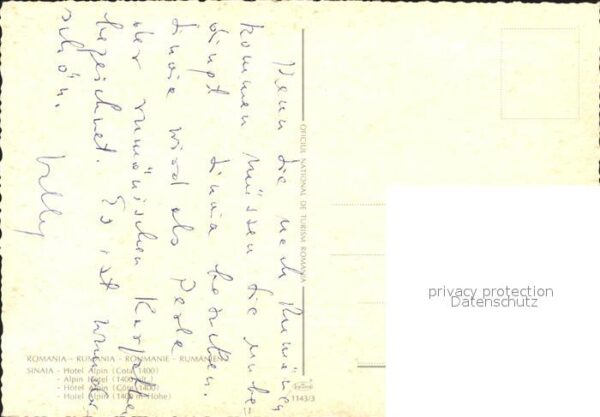 Wenn Sie nach Rumänien
kommen müssen Sie unbe-
dingt Sinaia besuchen.
Sinaia wird als Perle
der rumänischen Karpathen
bezeichnet. Es ist wunder
schön.
Willy
OFICIUL NATIONAL DE TURISM ROMANIA
ROMANIA - RUMANIA - ROUMANIE - RUMÄNIEN
SINAIA - Hotel Alpin (Cota 1400)
- Alpin Hotel (1400 alt.)
- Hôtel Alpin (Côte 1400)
- Hotel Alpin (1400 m Höhe)
1143/3
privacy protection
Datenschutz